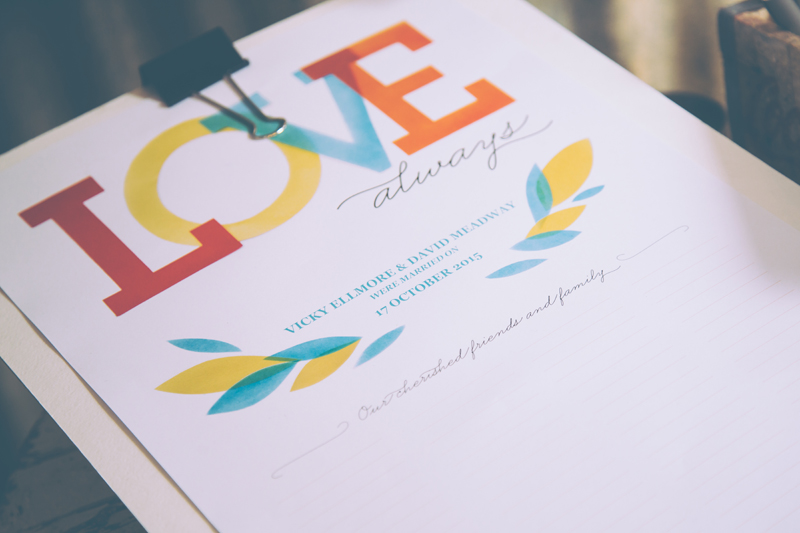 LOVE
always
VICKY ELLMORE & DAVID MEADWAY
WERE MARRIED ON
17 OCTOBER 2015
Our cherished friends and family